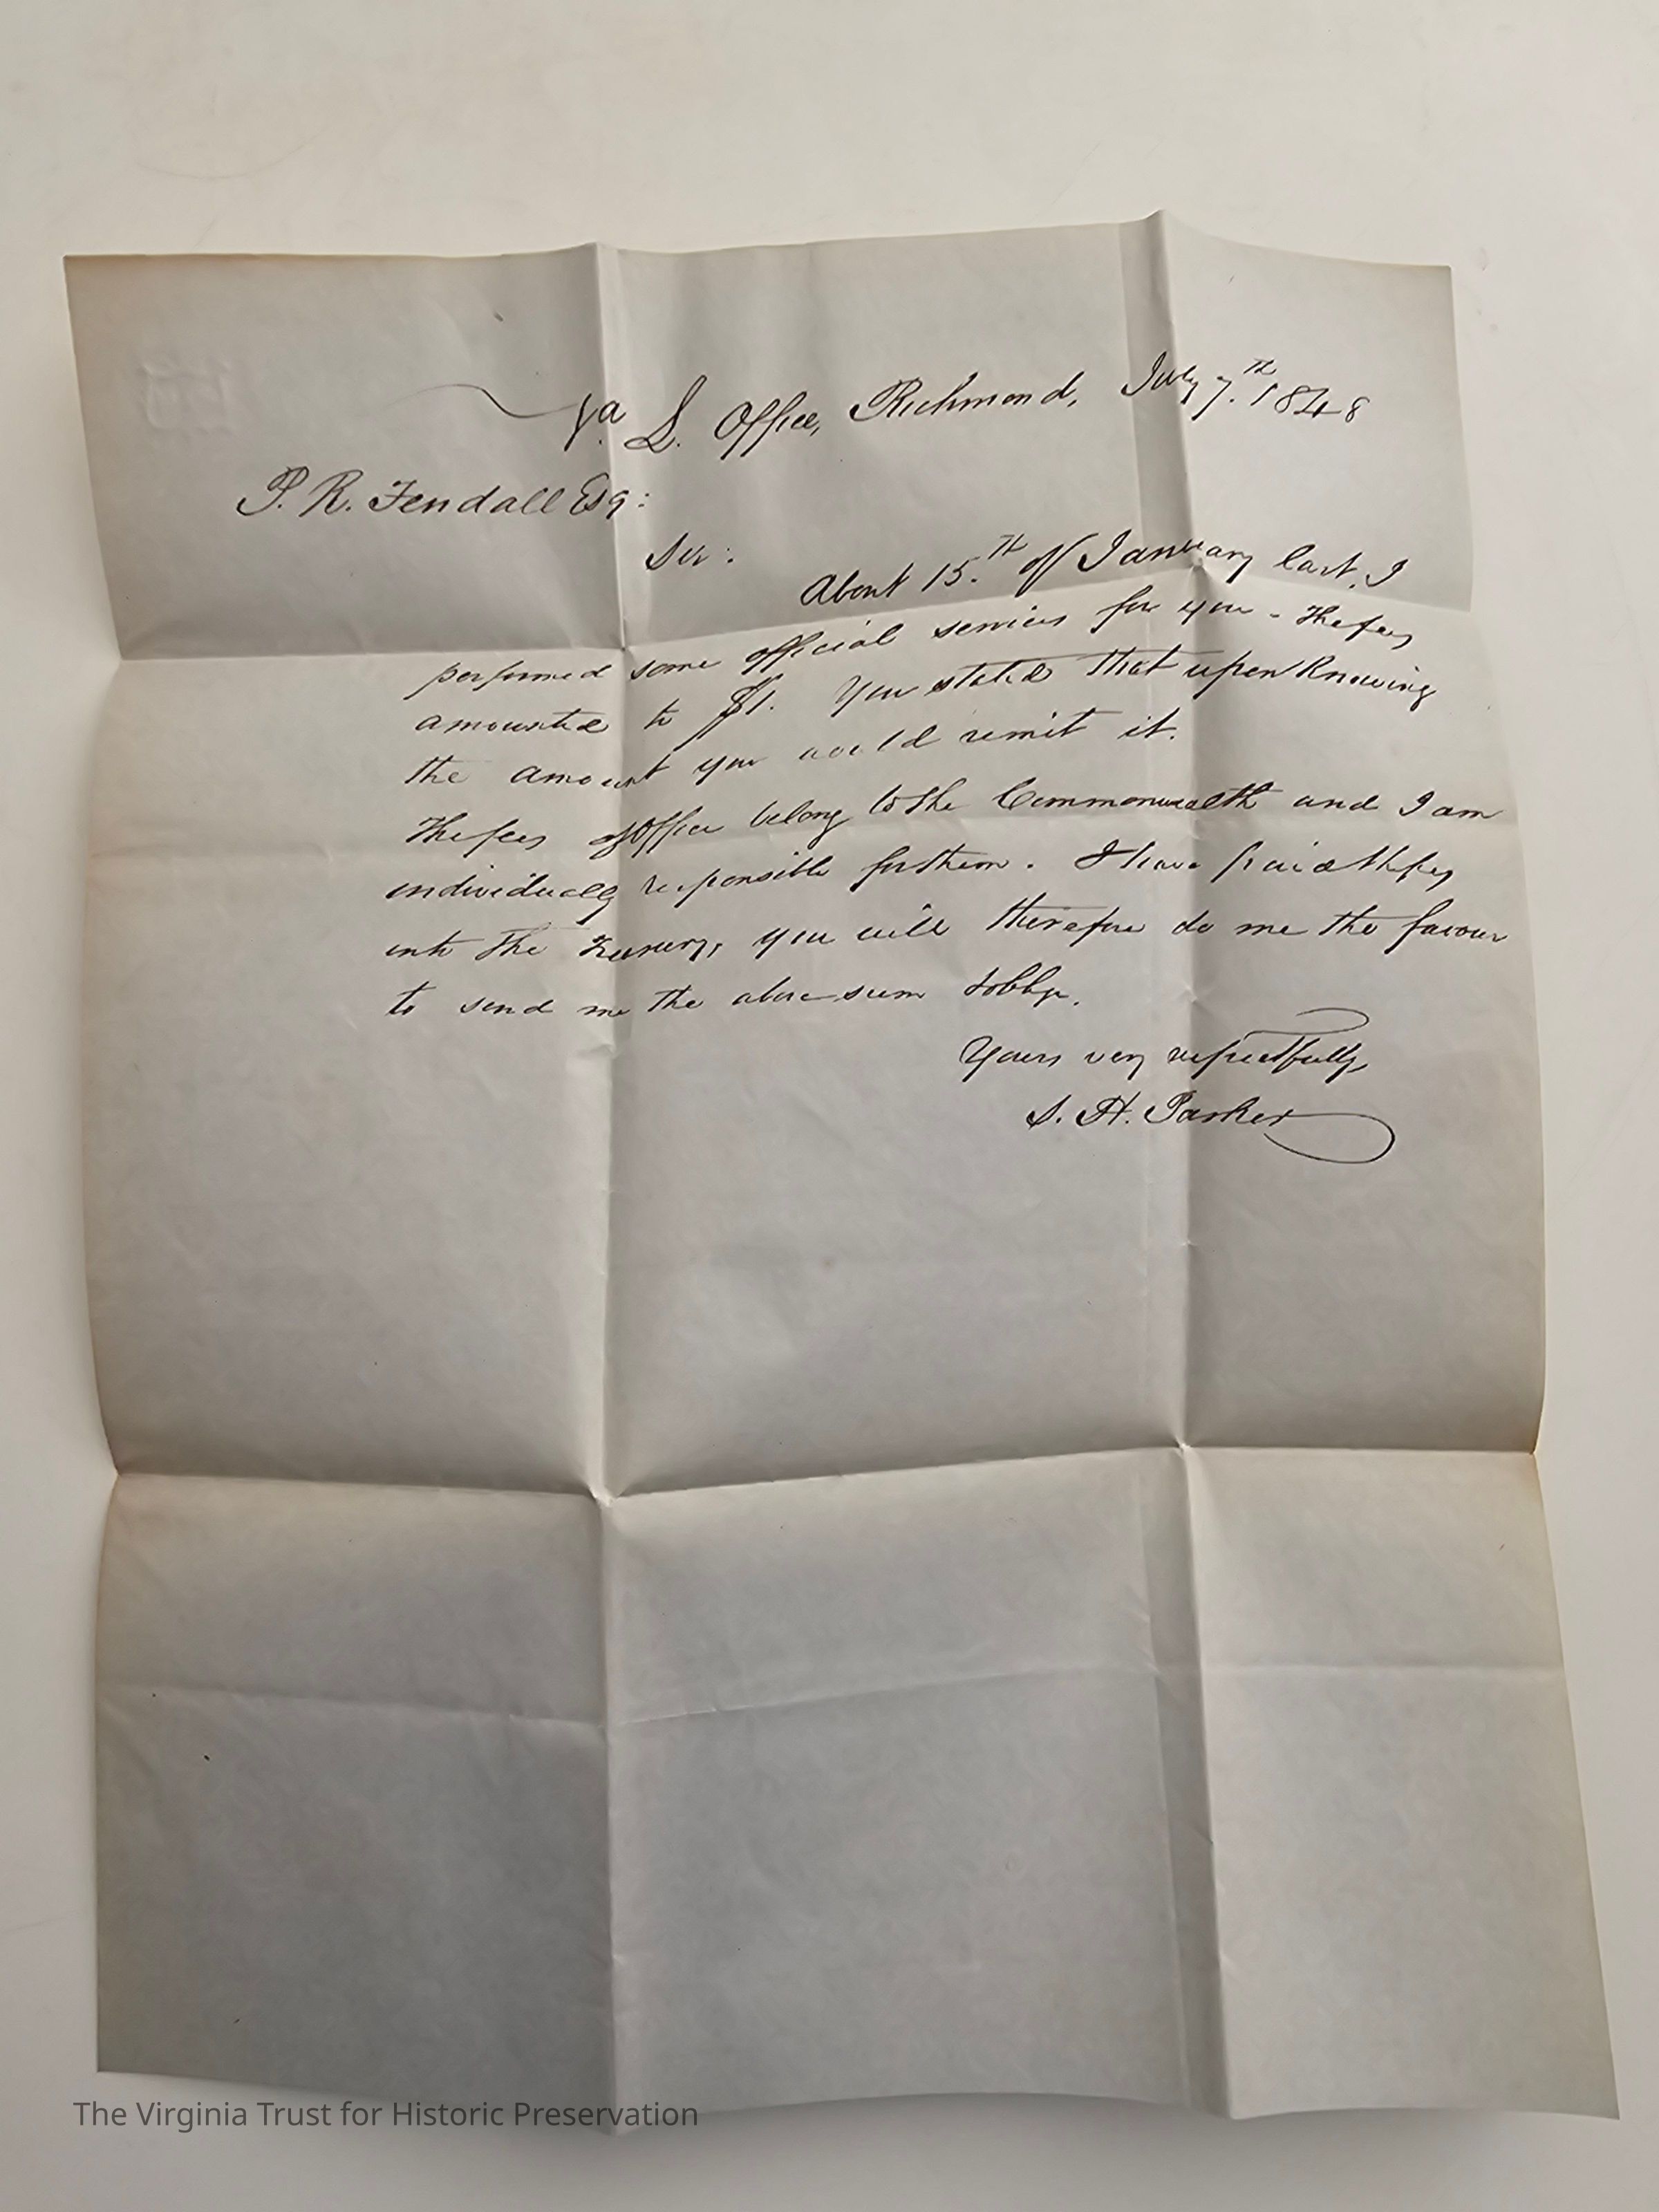 Va. L. Office, Richmond, July 7.th 1848
P. R. Fendall Esq:
Sir:
About 15.th of January last, I
performed some official services for you - The fees
amounted to $1. You stated that upon knowing
the amount you would remit it.
The fees of Office belong to the Commonwealth and I am
individually responsible for them. I have paid the fees
into the Treasury, you will therefore do me the favour
to send me the above sum & oblige.
Yours very respectfully,
S. H. Parker
The Virginia Trust for Historic Preservation